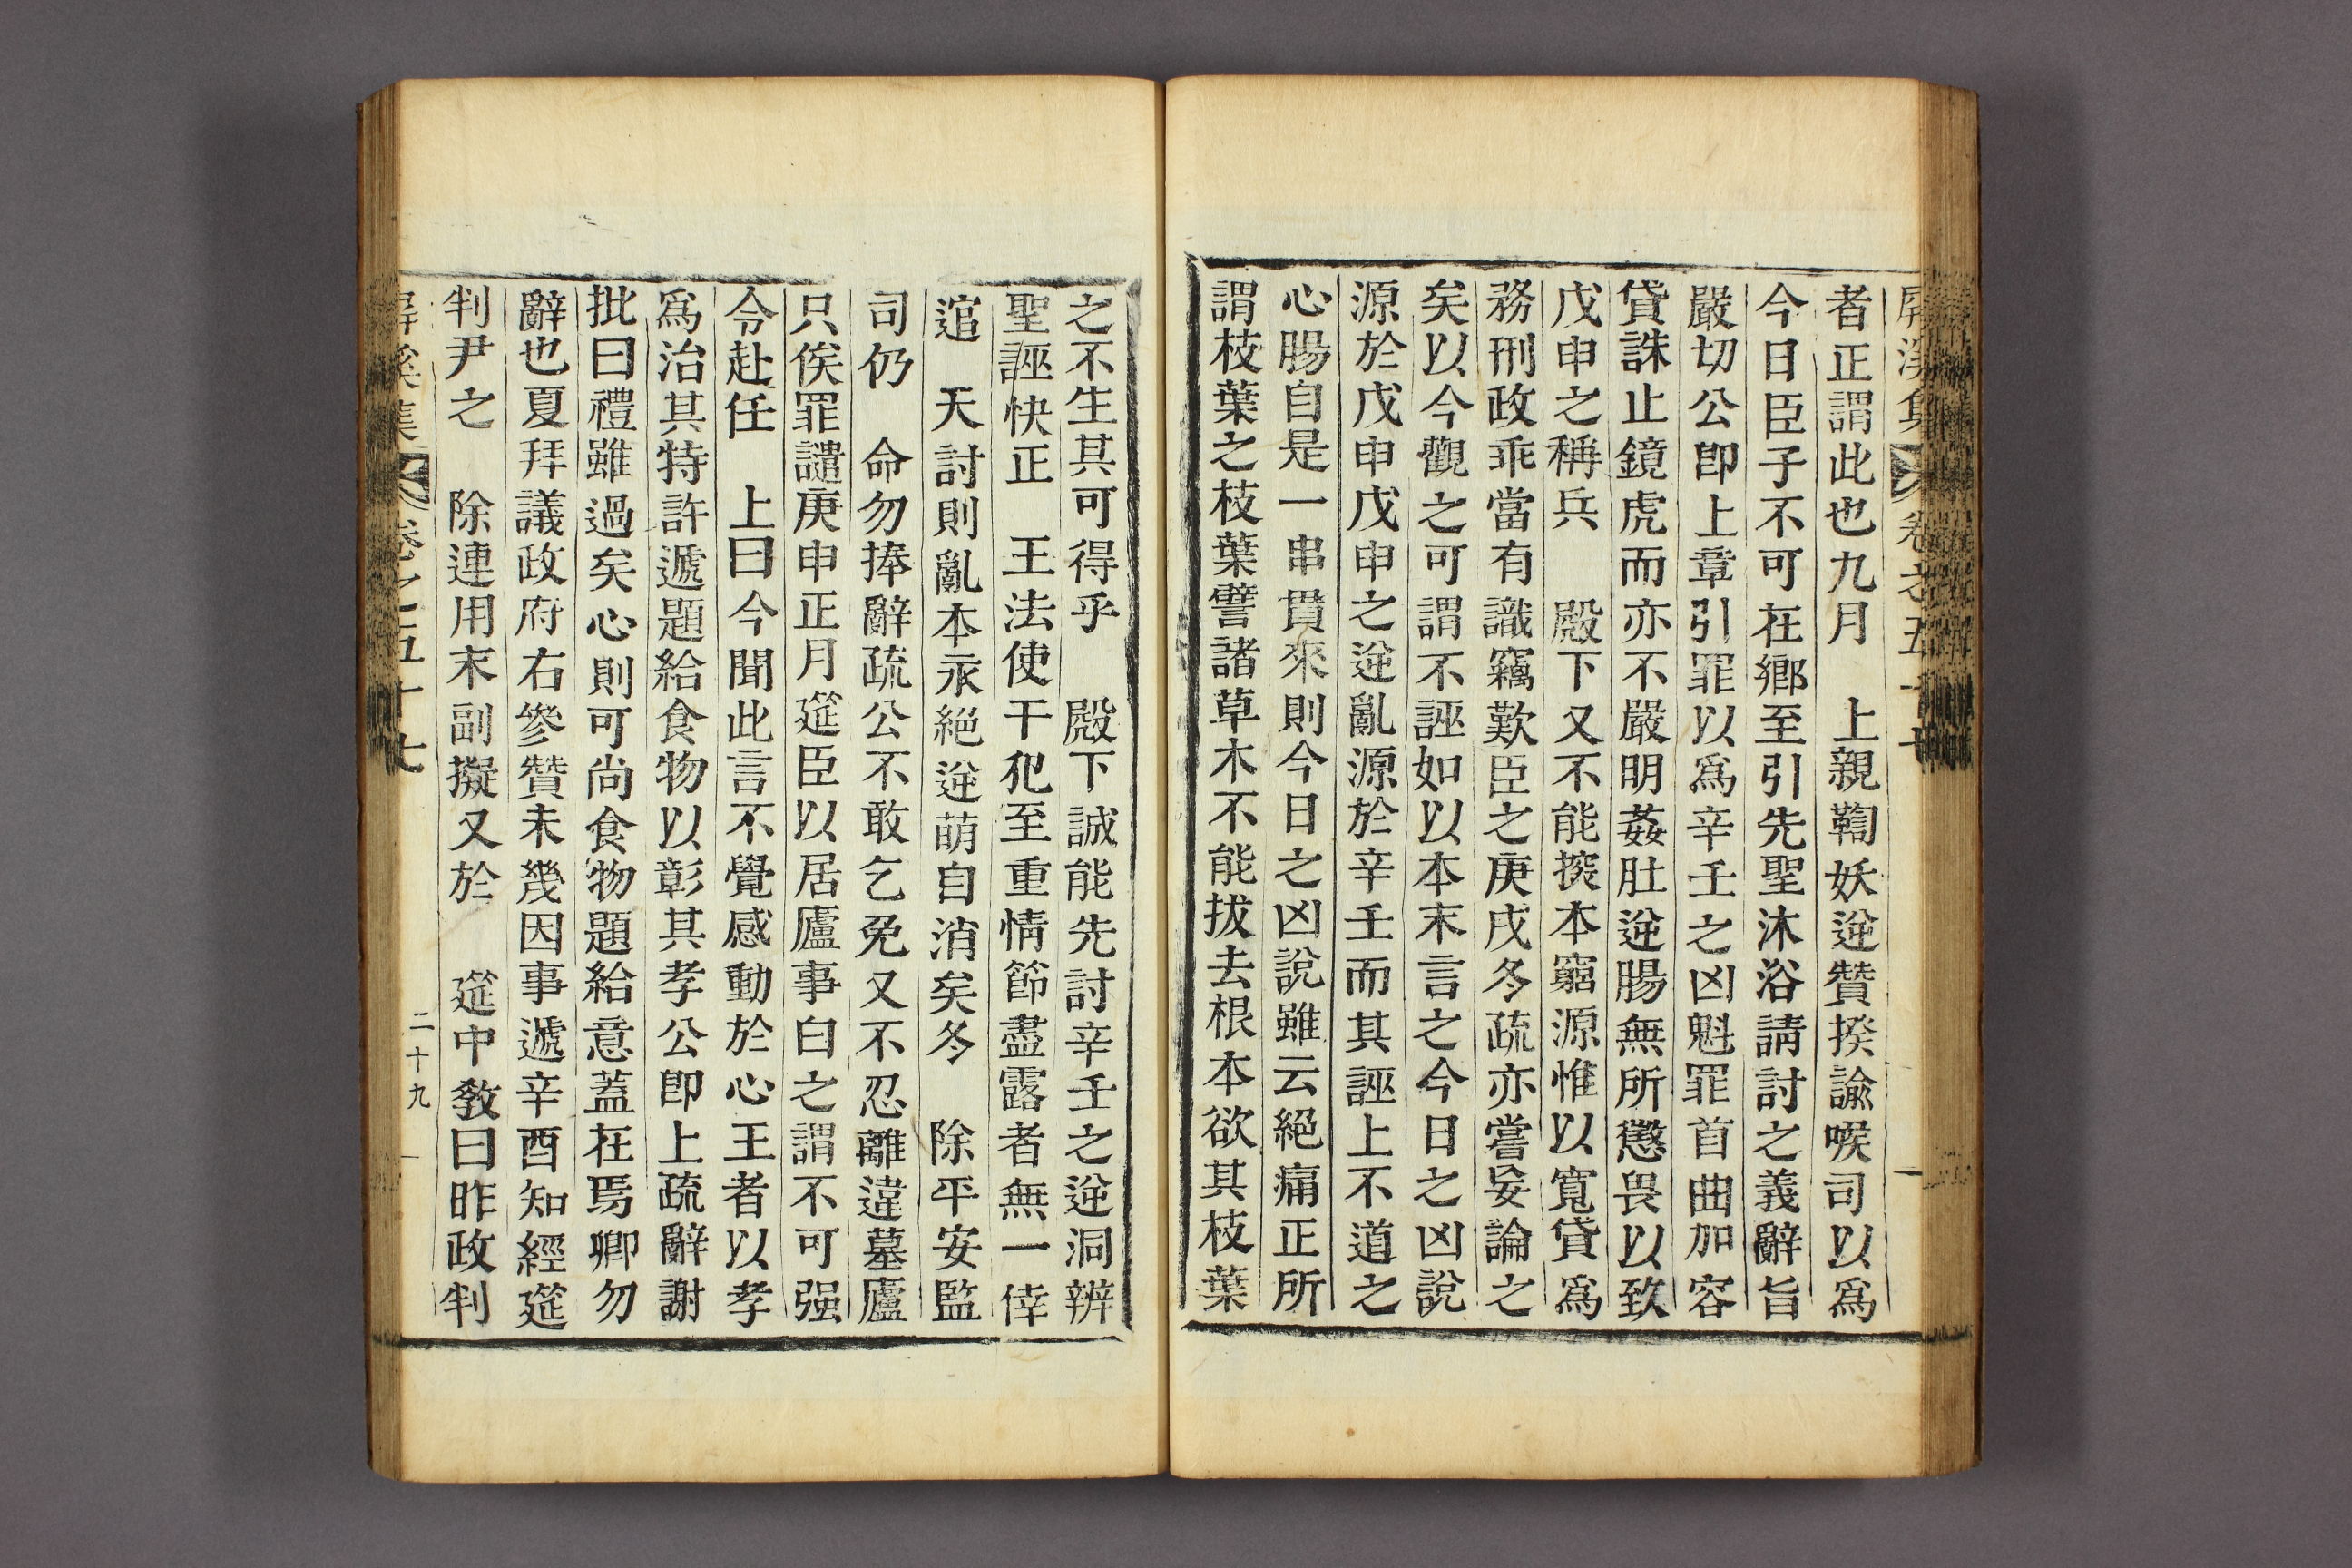 者正謂此也九月　上親鞫妖逆贊揆諭喉司以爲
今日臣子不可在鄕至引先聖沐浴請討之義辭旨
嚴切公卽上章引罪以爲辛壬之凶魁罪首曲加容
貸誅止鏡虎而亦不嚴明姦肚逆腸無所懲畏以致
戊申之稱兵　殿下又不能揆本窮源惟以寬貸爲
務刑政乖當有識竊歎臣之庚戌冬疏亦嘗妄論之
矣以今觀之可謂不誣如以本末言之今日之凶說
源於戊申戊申之逆亂源於辛壬而其誣上不道之
心腸自是一串貫來則今日之凶說雖云絕痛正所
謂枝葉之枝葉譬諸草木不能拔去根本欲其枝葉
之不生其可得乎　殿下誠能先討辛壬之逆洞辨
聖誣快正　王法使干犯至重情節盡露者無一倖
逭　天討則亂本永絕逆萌自消矣冬　除平安監
司仍　命勿捧辭疏公不敢乞免又不忍離違墓廬
只俟罪譴庚申正月筵臣以居廬事白之謂不可强
令赴任　上曰今聞此言不覺感動於心王者以孝
爲治其特許遞題給食物以彰其孝公卽上疏辭謝
批曰禮雖過矣心則可尚食物題給意蓋在焉卿勿
辭也夏拜議政府右參贊未幾因事遞辛酉知經筵
判尹之　除連用末副擬又於　筵中敎曰昨政判
屛溪集　卷之五十七
二十九